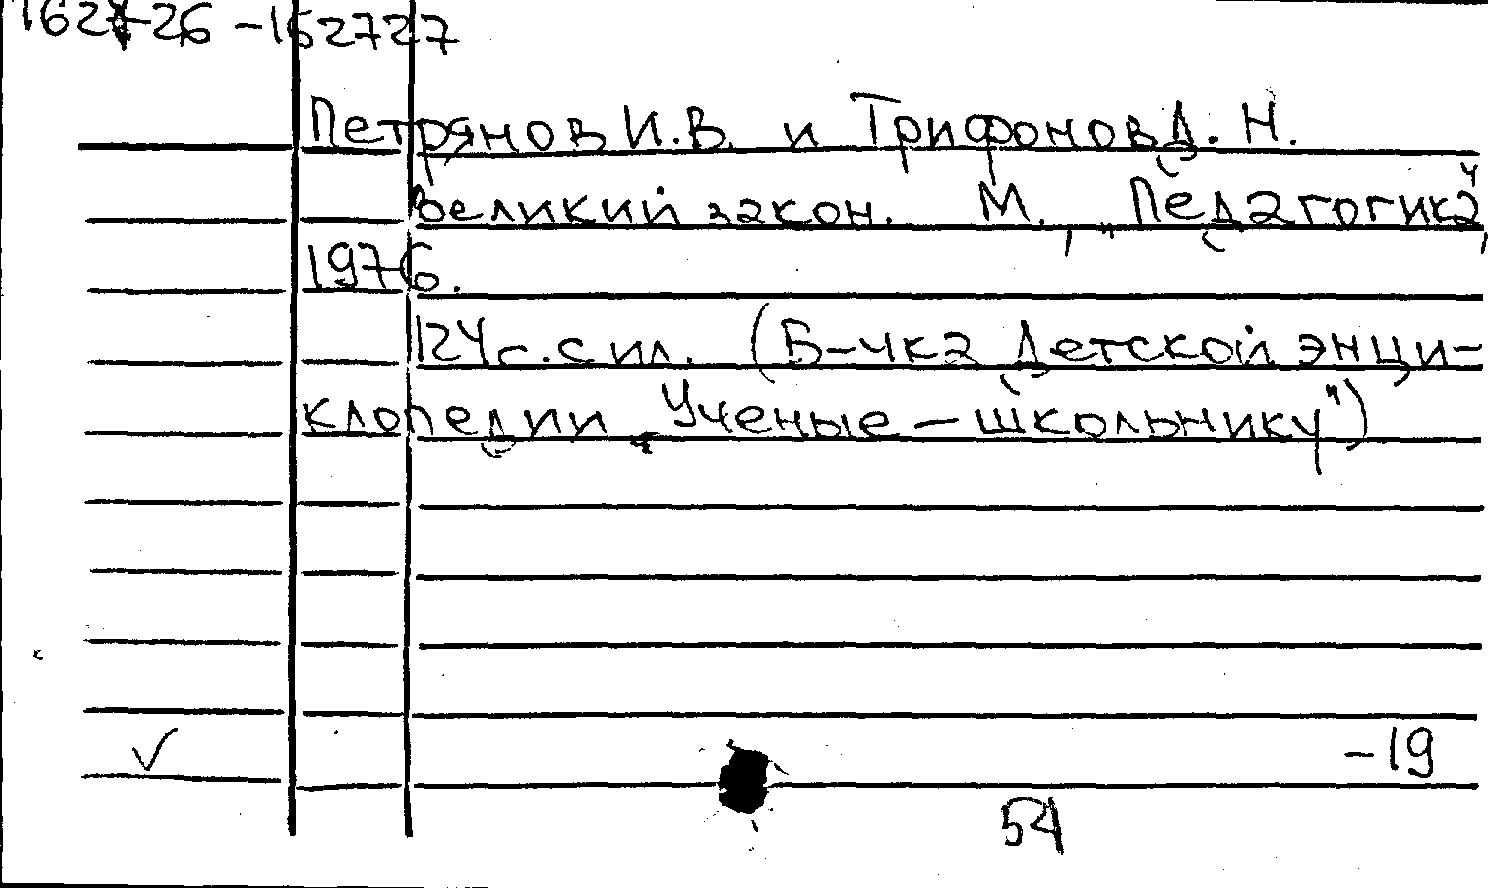 162726-162727
Петрянов И.В. и Трифонов Д.Н.
Великий закон. М., "Педагогика",
1976.
124с. с ил. (Б-чка Детской энци-
клопедии "Ученые - школьнику")
-19
54